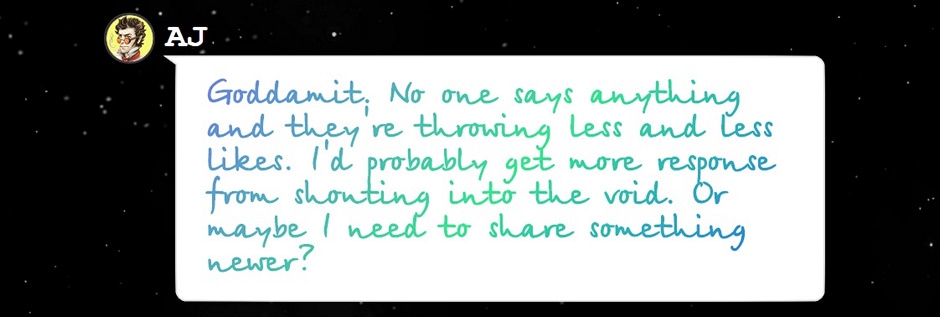 AJ
Goddamit. No one says anything
and they're throwing less and less
likes. I'd probably get more response
from shouting into the void. Or
maybe I need to share something
newer?